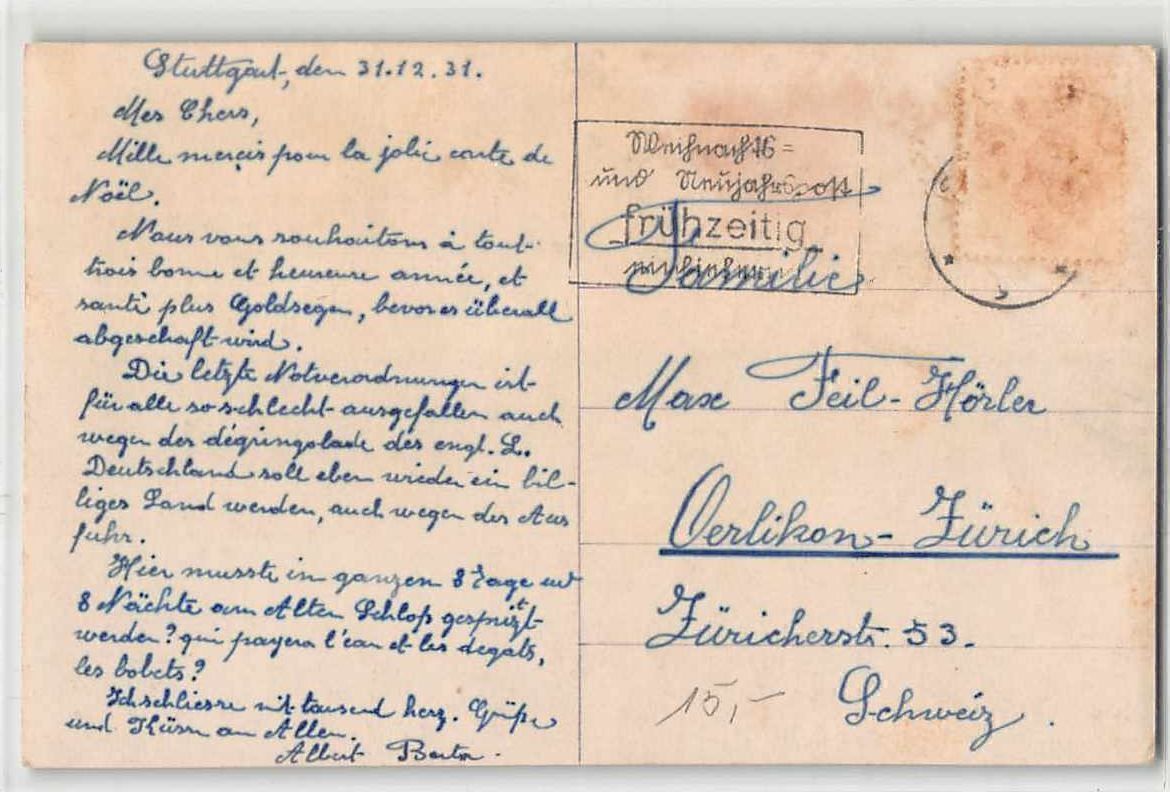 Stuttgart, den 31.12.31.
Mes Chers,
Mille mercis pour la jolie carte de
Noël.
Nous vous souhaitons à tout-
trois bonne et heureuse année, et
santé plus Goldsegen, bevor es überall
abgeschaft wird.
Die letzte Notverordnungen ist
für alle so schlecht ausgefallen auch
wegen der dégringolade des engl. L.
Deutschland soll eben wieder ein bil-
liges Land werden, auch wegen der Aus
fuhr.
Hier musste im ganzen 8 Tage und
8 Nächte am Alten Schloß gespritzt
werden? qui payera l'eau et les dégats,
les bobets?
Ich schliesse mit tausend herz. Grüße
und Küsse an Allen.
Albert
Weihnachts=
und Neujahrspost
frühzeitig
Familie
Max Feil-Hörler
Oerlikon-Zürich
Züricherstr. 53.
Schweiz.
15,-